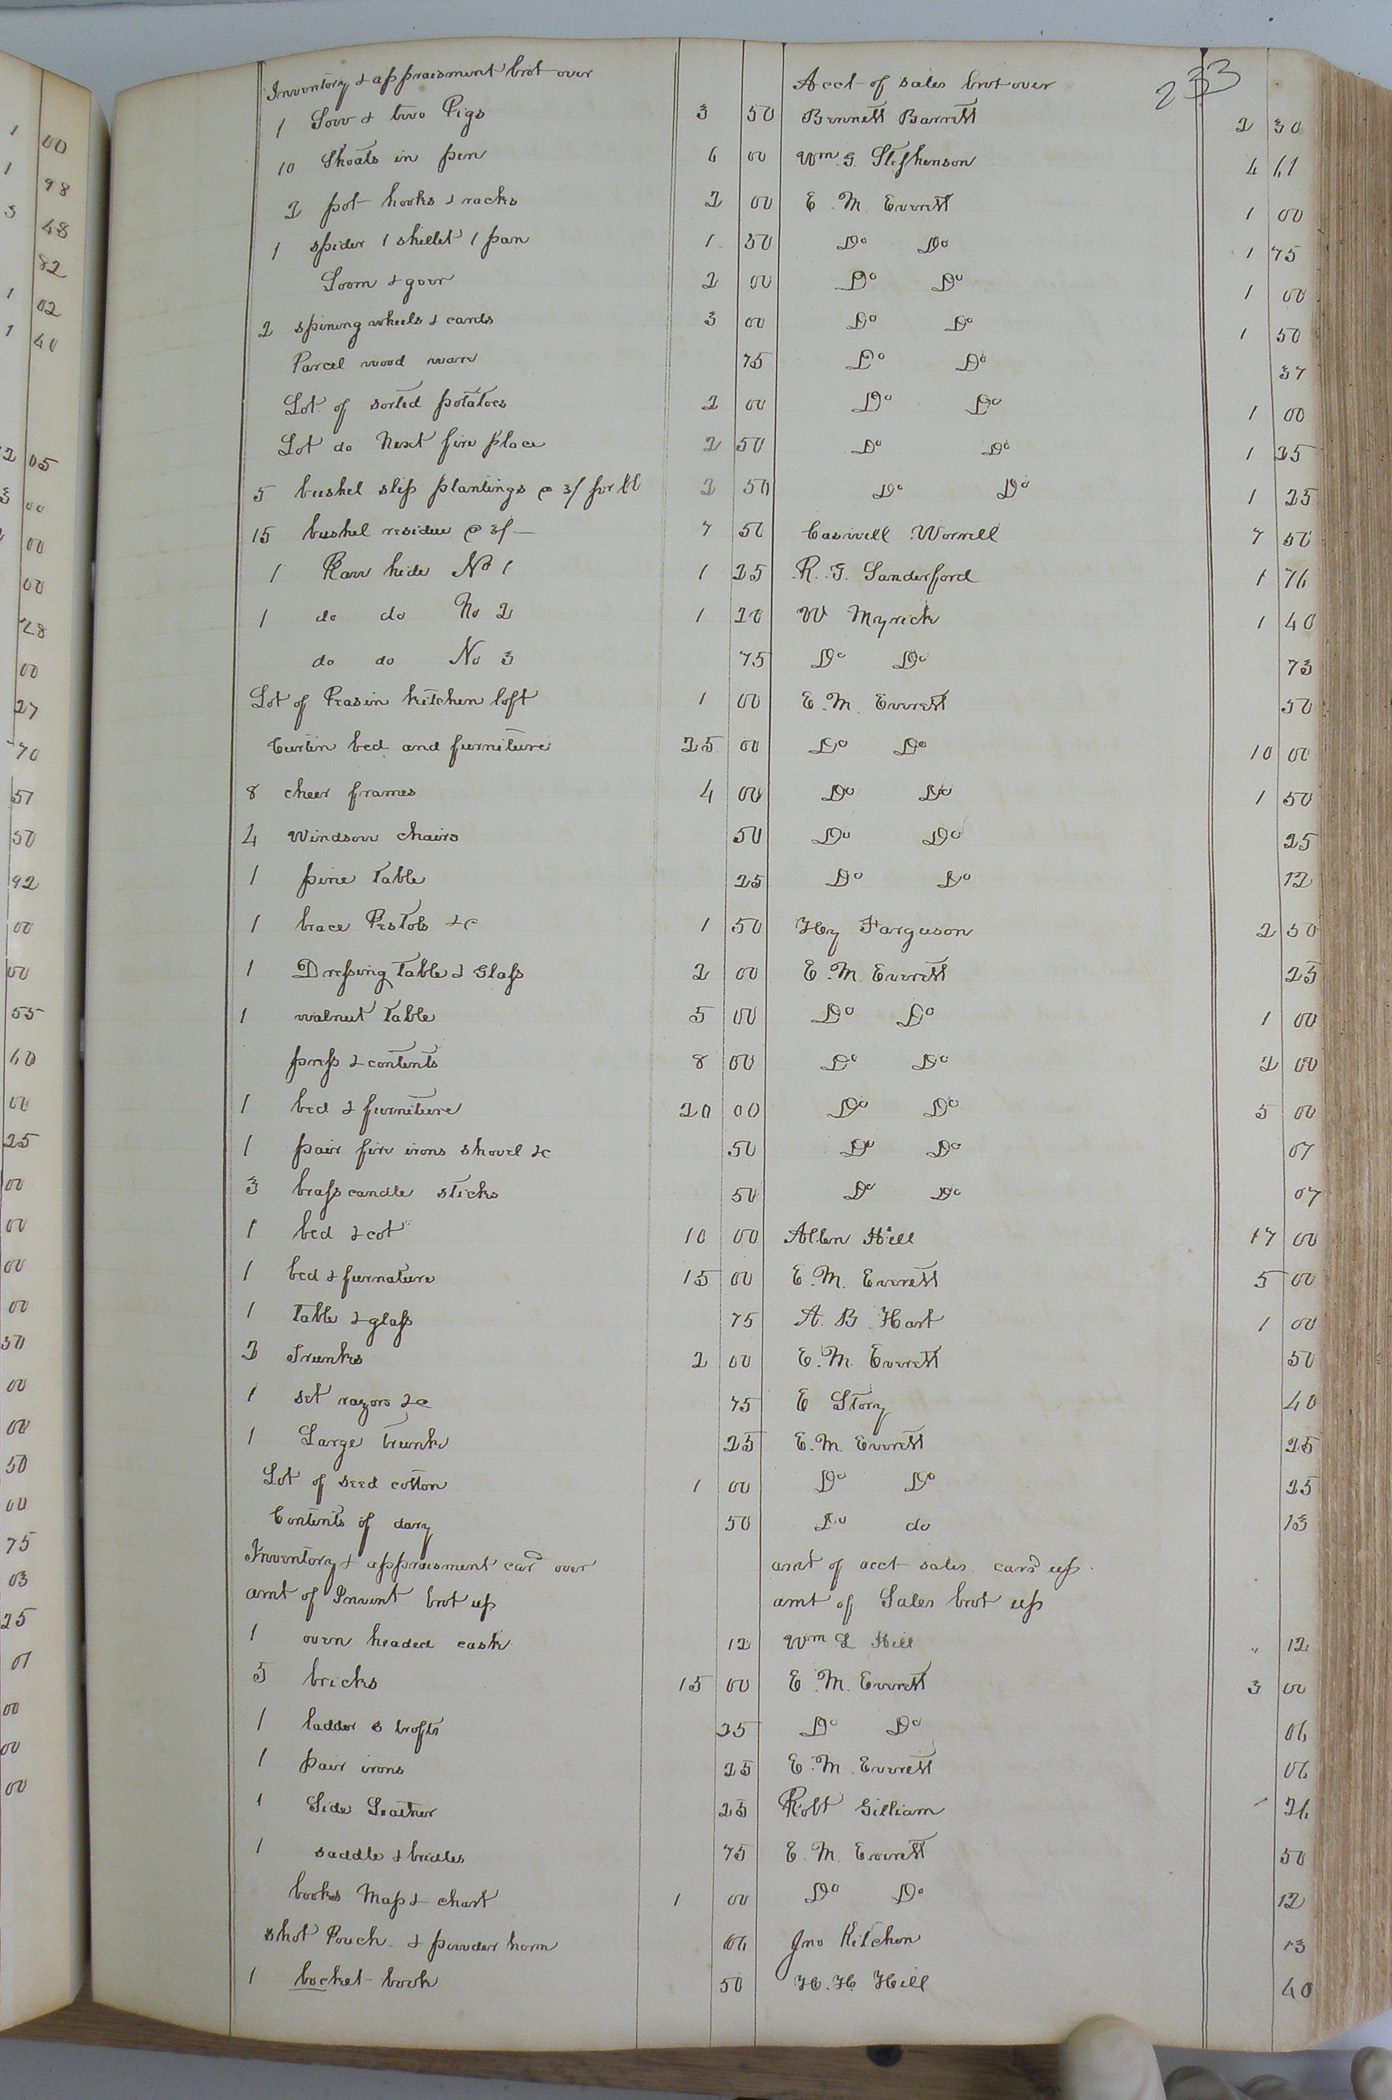 233
Inventory & appraisment brot over Acct of sales brot over
1 Sow & two Pigs 3 50 Bennett Barrett 2 30
10 Shoats in pen 6 00 Wm. G. Stephenson 4 61
2 pot hooks & racks 2 00 E. M. Everett 1 00
1 spider 1 skillet 1 pan 1 50 Do Do 1 75
Loom & gear 2 00 Do Do 1 00
2 spining wheels & cards 3 00 Do Do 1 50
Parcel wood ware 75 Do Do 37
Lot of sorted potatoes 2 00 Do Do 1 00
Lot do Next fire place 2 50 Do Do 1 25
5 bushel slip plantings @ 3/ pr bb 2 50 Do Do 1 25
15 bushel residue @ 3/— 7 50 Caswell Worrell 7 50
1 Raw hide No 1 1 25 R. G. Sanderford 1 76
1 do do No 2 1 20 W Myrick 1 40
do do No 3 75 Do Do 73
Lot of Peas in kitchen loft 1 00 E. M. Everett 50
Curtin bed and furniture 25 00 Do Do 10 00
8 cheer frames 4 00 Do Do 1 50
4 Windsor chairs 50 Do Do 25
1 pine table 25 Do Do 12
1 brace Pistols &c 1 50 Hy Farguson 2 50
1 Dressing table & Glass 2 00 E. M. Everett 25
1 walnut table 5 00 Do Do 1 00
press & contents 8 00 Do Do 2 00
1 bed & furniture 20 00 Do Do 5 00
1 pair fire irons shovel &c 50 Do Do 07
3 brass candle sticks 50 Do Do 07
1 bed & cot 10 00 Allen Hill 17 00
1 bed & furnature 15 00 E. M. Everett 5 00
1 table & glass 75 A. B. Hart 1 00
2 Trunks 2 00 E. M. Everett 50
1 set razors &c 75 E Story 40
1 Large trunk 25 E. M. Everett 25
Lot of seed cotton 1 00 Do Do 25
Contents of dary 50 Do do 13
Inventory & appraisment card over amt of acct sales card up
amt of Invent brot up amt of Sales brot up
1 oven headed cask 12 Wm L Hill " 12
5 bricks 15 00 E. M. Everett 3 00
1 ladder 25 Do Do 06
1 pair irons 25 E. M. Everett 06
1 Side Leather 25 Robt Gilliam 26
1 saddle & bridles 75 E. M. Everett 50
books Map & chart 1 00 Do Do 12
shot Pouch & powder horn 06 Jno Kitchen 13
1 bocket book 50 H. H. Hill 40
1 00
1 98
3 48
82
1 02
1 40
12 05
3 00
00
00
28
00
27
70
57
50
92
00
00
55
60
00
25
00
00
00
00
50
00
00
50
00
75
03
25
01
00
00
00